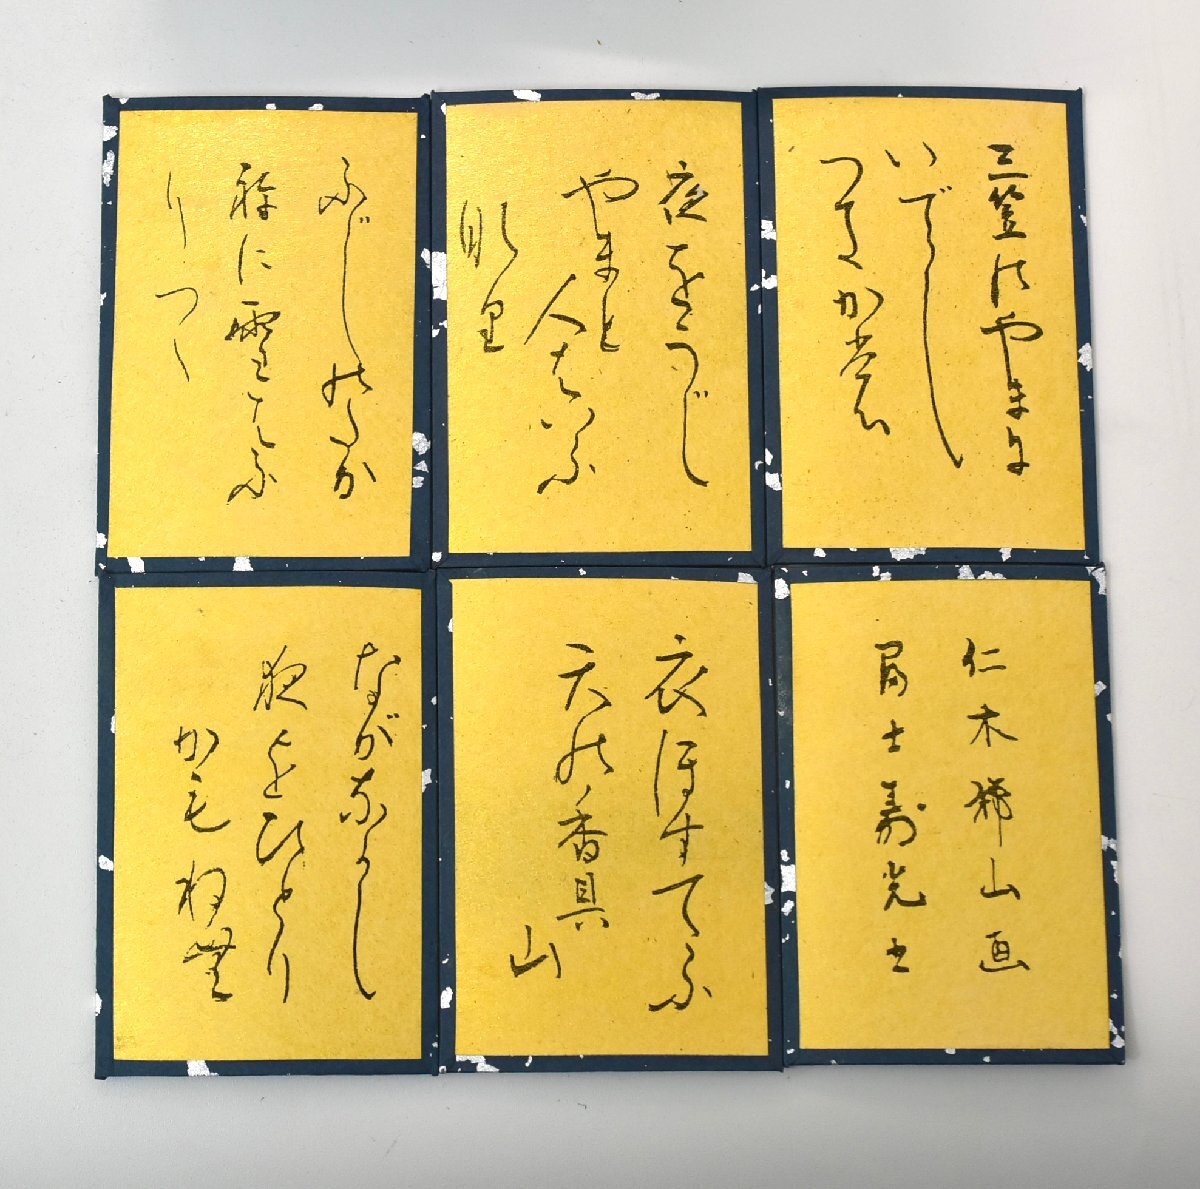 三笠のやまに
いでし
つきかも
夜をうじ
やまと
人はいふ
なり
ふじのたか
祢に雪はふ
りつゝ
仁木稀山画
冨士寿光書
衣ほすてふ
天の香具
山
ながながし
夜をひとり
かもねむ